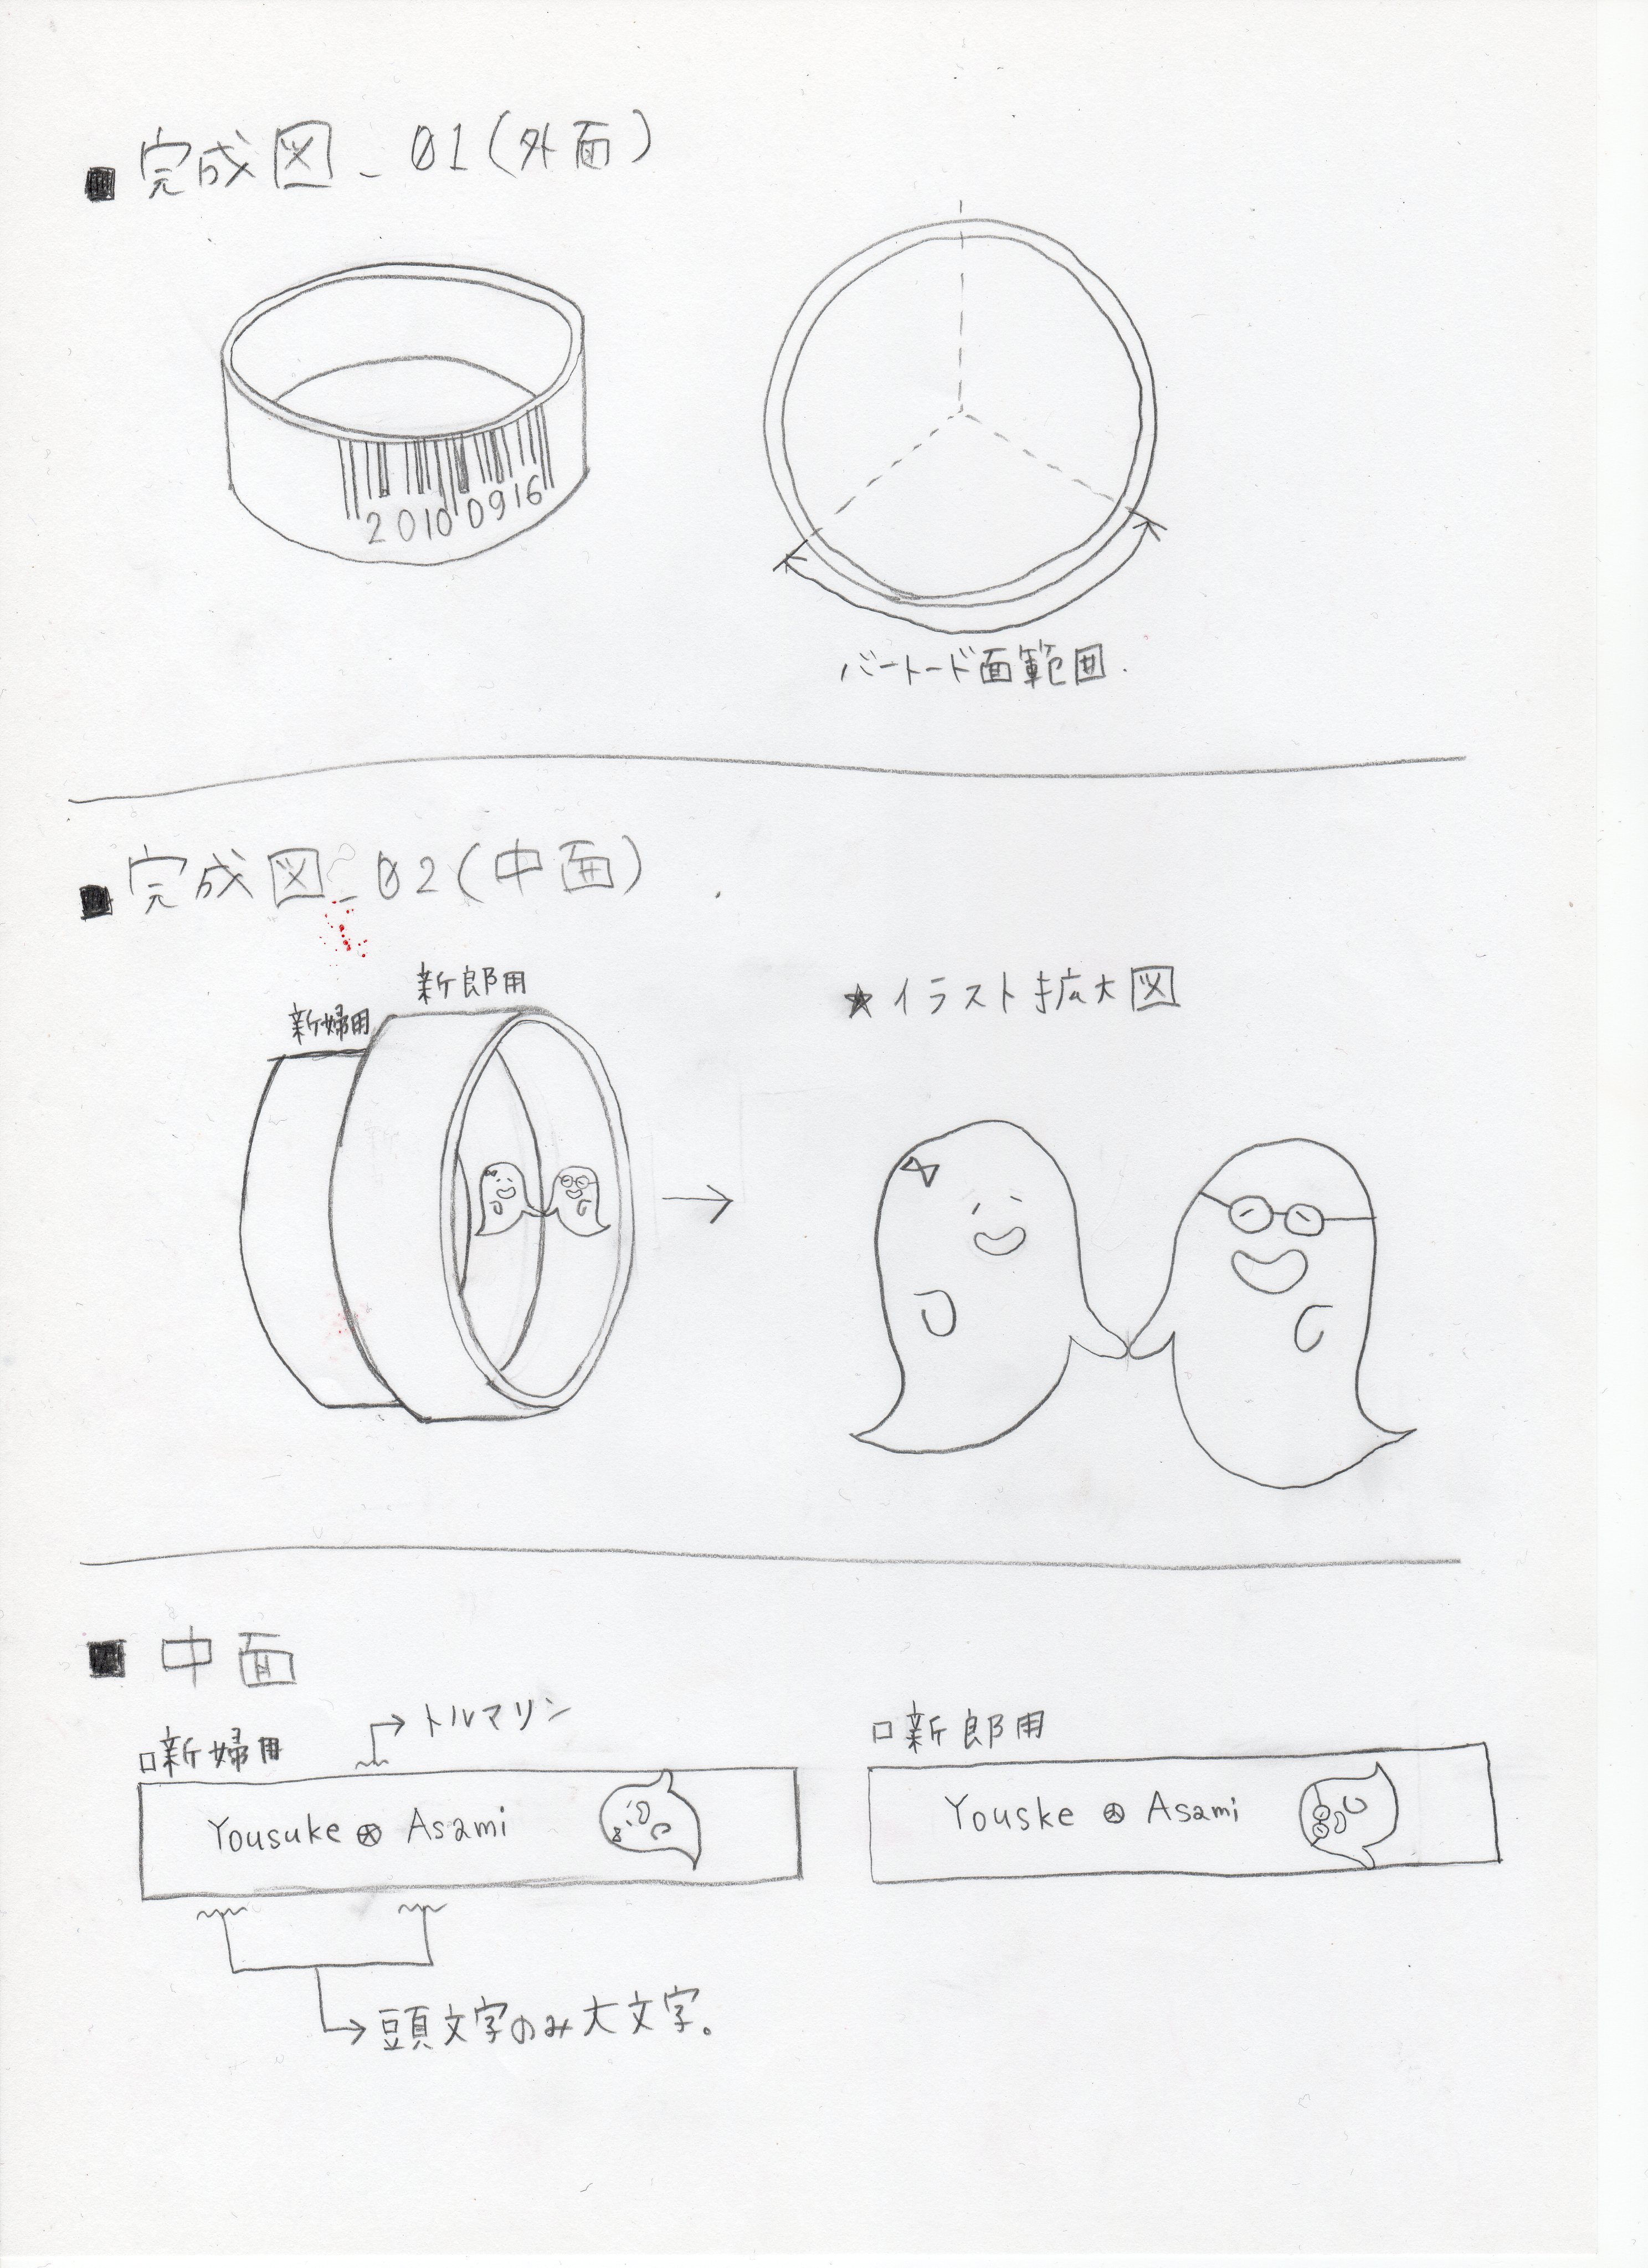 ■完成図_01(外面)
20100916
バートード面範囲.
■完成図_02(中面)
新郎用
新婦用
★イラスト拡大図
■中面
トルマリン
□新婦用
Yousuke Asami
頭文字のみ大文字。
□新郎用
Youske Asami